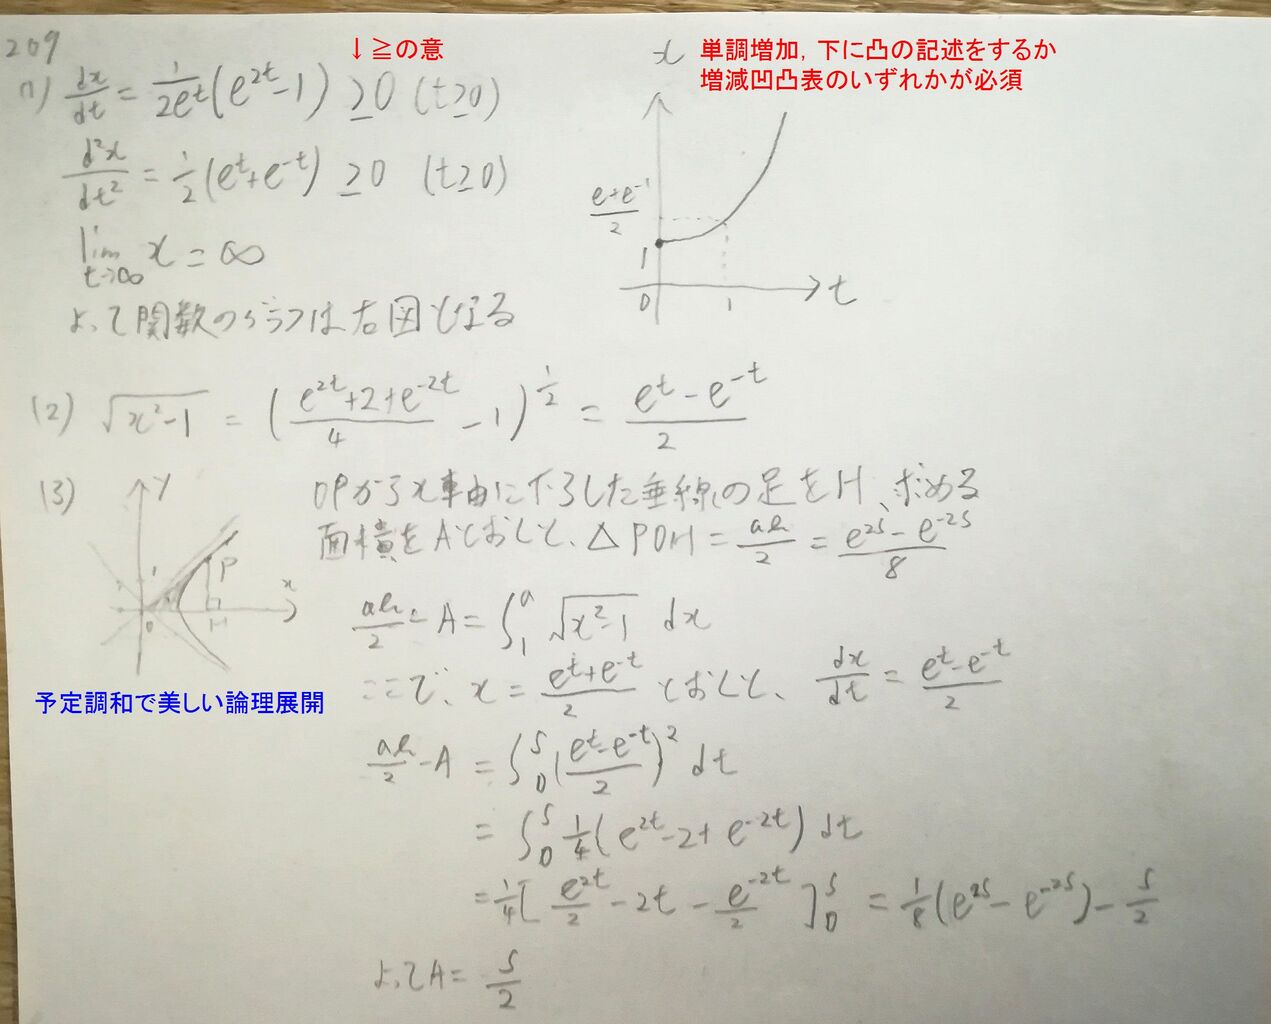 209
↓≧の意
(1) dx/dt = 1/2e^t (e^2t - 1) ≥0 (t≥0)
d²x/dt² = 1/2 (e^t + e^-t) ≥0 (t≥0)
lim t→∞ x = ∞
よって関数のグラフは右図となる
x 単調増加, 下に凸の記述をするか
増減凹凸表のいずれかが必須
e+e^-1/2
1
0 1 t
(2) √x²-1 = (e^2t+2+e^-2t/4 - 1)^1/2 = e^t - e^-t/2
(3) y
1
P
x
0 H
予定調和で美しい論理展開
OPからx軸に下ろした垂線の足をH、求める
面積をAとおくと、△POH = ab/2 = e^2s - e^-2s/8
ab/2 - A = ∫_1^a √x²-1 dx
ここで、x = e^t+e^-t/2 とおくと、dx/dt = e^t-e^-t/2
ab/2 - A = ∫_0^s (e^t-e^-t/2)² dt
= ∫_0^s 1/4 (e^2t - 2 + e^-2t) dt
= 1/4 [e^2t/2 - 2t - e^-2t/2]_0^s = 1/8 (e^2s - e^-2s) - s/2
よってA = s/2